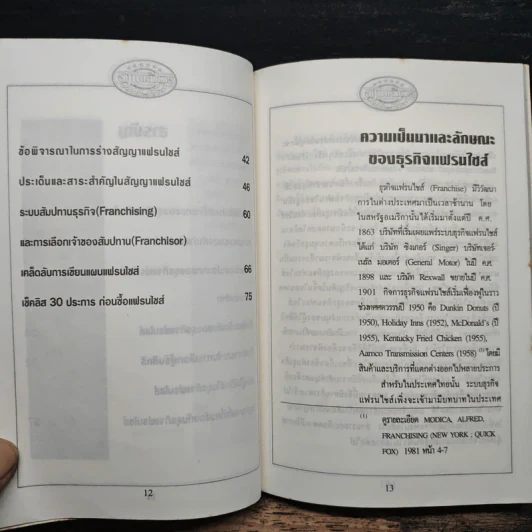 ข้อพิจารณาในการร่างสัญญาแฟรนไชส์ 42
ประเด็นและสาระสำคัญในสัญญาแฟรนไชส์ 46
ระบบสัมปทานธุรกิจ(Franchising) 60
และการเลือกเจ้าของสัมปทาน(Franchisor)
เคล็ดลับการเขียนแผนแฟรนไชส์ 66
เช็คลิส 30 ประการ ก่อนซื้อแฟรนไชส์ 75
12
ความเป็นมาและลักษณะ
ของธุรกิจแฟรนไชส์
ธุรกิจแฟรนไชส์ (Franchise) มีวิวัฒนา
การในต่างประเทศมาเป็นเวลาช้านาน โดย
ในสหรัฐอเมริกานั้นได้เริ่มมาตั้งแต่ปี ค.ศ.
1863 บริษัทที่เริ่มเผยแพร่ระบบธุรกิจแฟรนไชส์
ได้แก่ บริษัท ซิงเกอร์ (Singer) บริษัทเจอร์-
เนรัล มอเตอร์ (General Motor) ในปี ค.ศ.
1898 และ บริษัท Rexwall ขยายในปี ค.ศ.
1901 กิจการธุรกิจแฟรนไชส์เริ่มเฟื่องฟูในราว
ช่วงทศตวรรษปี 1950 คือ Dunkin Donuts (ปี
1950), Holiday Inns (1952), McDonald's (ปี
1955), Kentucky Fried Chicken (1955),
Aamco Transmission Centers (1958) (1) โดยมี
สินค้าและบริการที่แตกต่างออกไปหลายประการ
สำหรับในประเทศไทยนั้น ระบบธุรกิจ
แฟรนไชส์เพิ่งจะเข้ามามีบทบาทในประเทศ
(1) ดูรายละเอียด MODICA, ALFRED,
FRANCHISING (NEW YORK : QUICK
FOX) 1981 หน้า 4-7
13